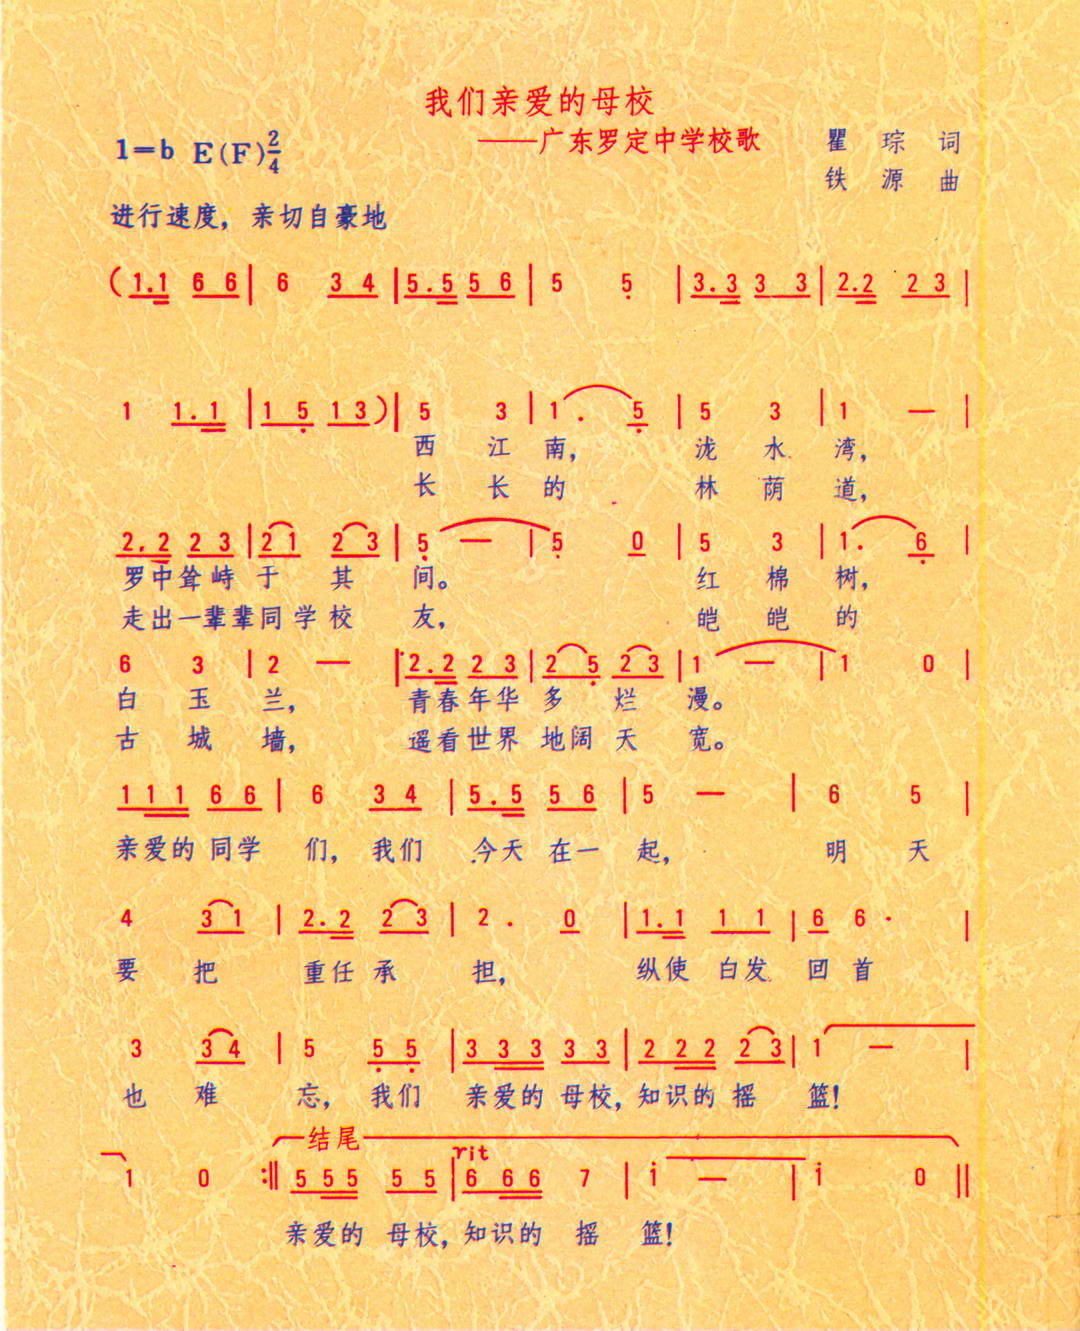 我们亲爱的母校
——广东罗定中学校歌
1=b E(F) 2/4
瞿 琮 词
铁 源 曲
进行速度，亲切自豪地
(1.1 6 6 | 6 3 4 | 5.5 5 6 | 5 5 | 3.3 3 3 | 2.2 2 3 |
1 1.1 | 1 5 1 3) | 5 3 | 1. 5 | 5 3 | 1 — |
西 江 南， 泷 水 湾，
长 长 的 林 荫 道，
2.2 2 3 | 2 1 2 3 | 5 — | 5 0 | 5 3 | 1. 6 |
罗中耸峙于 其 间。 红 棉 树，
走出一辈辈同学校 友， 皑 皑 的
6 3 | 2 — | 2.2 2 3 | 2 5 2 3 | 1 — | 1 0 |
白 玉 兰， 青春年华 多 烂 漫。
古 城 墙， 遥看世界 地阔 天 宽。
1 1 1 6 6 | 6 3 4 | 5.5 5 6 | 5 — | 6 5 |
亲爱的 同学 们， 我们 今天 在一 起， 明 天
4 3 1 | 2.2 2 3 | 2. 0 | 1.1 1 1 | 6 6. |
要 把 重任 承 担， 纵使 白发 回 首
3 3 4 | 5 5 5 | 3 3 3 3 3 | 2 2 2 2 3 | 1 — |
也 难 忘， 我们 亲爱的 母校，知识的 摇 篮！
结尾
rit
1 0 :‖ 5 5 5 5 5 | 6 6 6 7 | i — | i 0 ‖
亲爱的 母校，知识的 摇 篮！